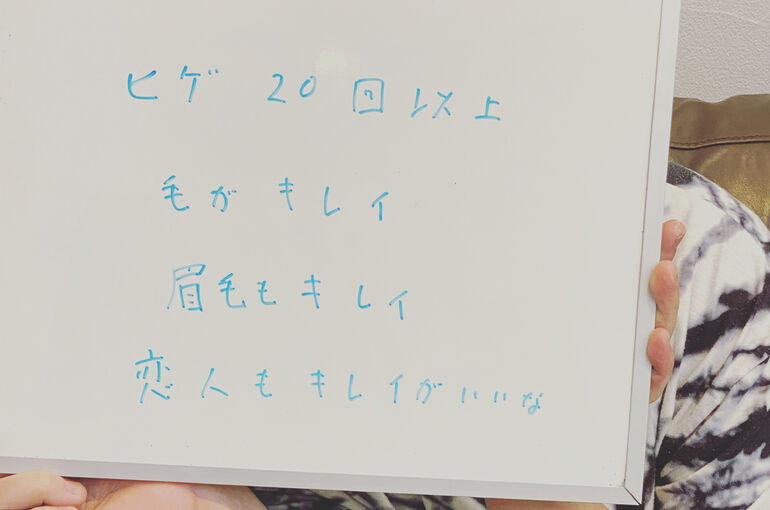 ヒゲ 20回以上
毛がキレイ
眉毛もキレイ
恋人もキレイがいいな